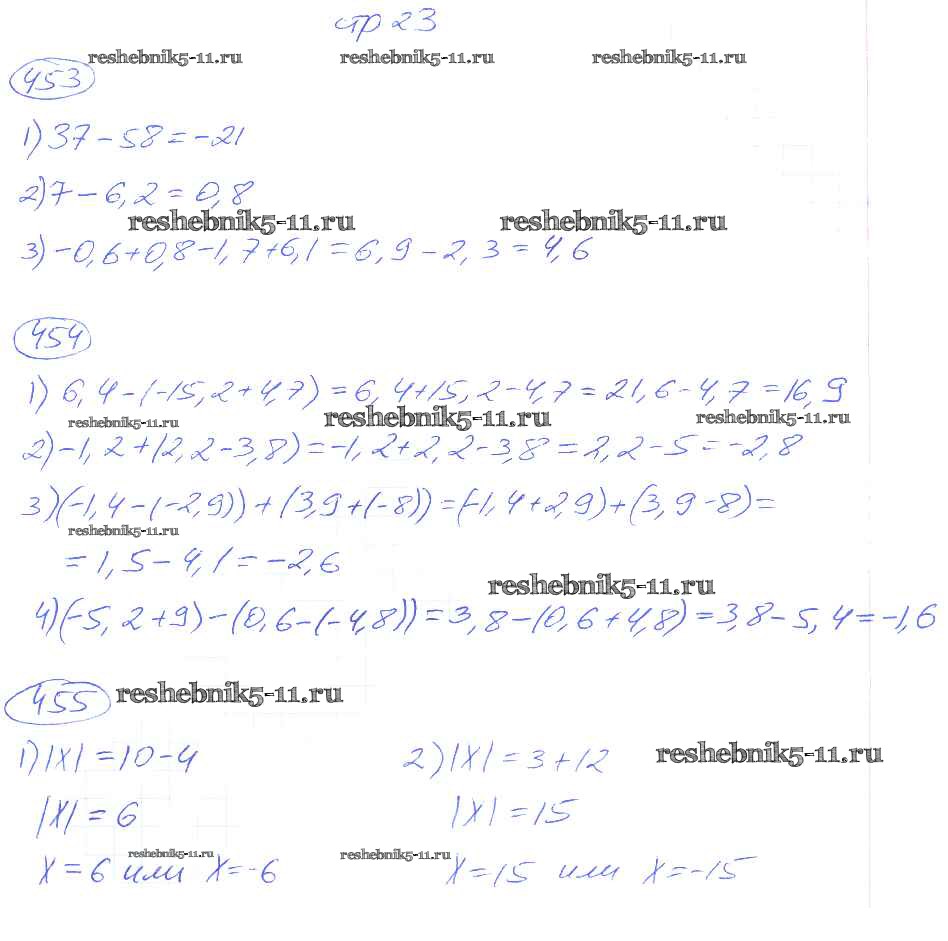 стр 23
reshebnik5-11.ru reshebnik5-11.ru reshebnik5-11.ru
453
1) 37 - 58 = -21
2) 7 - 6,2 = 0,8
reshebnik5-11.ru reshebnik5-11.ru
3) -0,6+0,8-1,7+6,1 = 6,9 - 2,3 = 4,6
454
1) 6,4 - (-15,2 + 4,7) = 6,4+15,2 - 4,7 = 21,6 - 4,7 = 16,9
reshebnik5-11.ru reshebnik5-11.ru reshebnik5-11.ru
2) -1,2 + (2,2 - 3,8) = -1,2 + 2,2 - 3,8 = 2,2 - 5 = -2,8
3) (-1,4 - (-2,9)) + (3,9 + (-8)) = (-1,4 + 2,9) + (3,9 - 8) =
reshebnik5-11.ru
= 1,5 - 4,1 = -2,6
reshebnik5-11.ru
4) (-5,2 + 9) - (0,6 - (-4,8)) = 3,8 - (0,6 + 4,8) = 3,8 - 5,4 = -1,6
455 reshebnik5-11.ru
1) |x| = 10 - 4 2) |x| = 3 + 12 reshebnik5-11.ru
|x| = 6 |x| = 15
reshebnik5-11.ru reshebnik5-11.ru
x = 6 или x = -6 x = 15 или x = -15